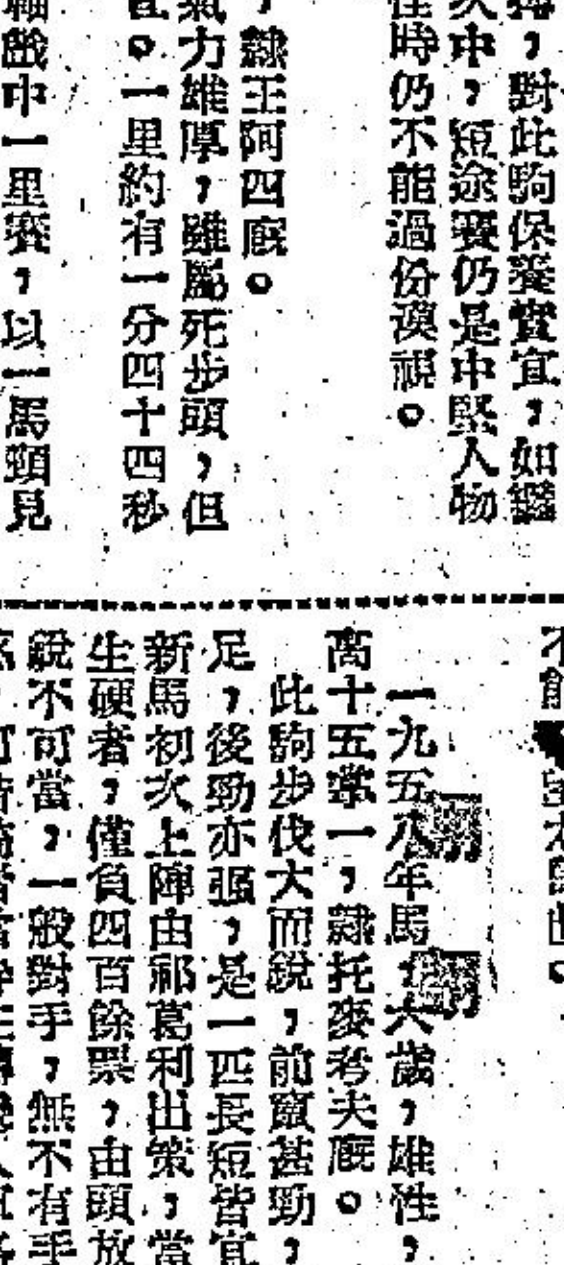 搏，對此駒保養實宜，如繼
次中，短途賽仍是中堅人物
佳時仍不能過份漠視。
，隸王阿四廐。
氣力雄厚，雖屬死步頭，但
。一里約有一分四十四秒
軸戲中一里賽，以一馬頸見
一九五八年馬，六歲，雄性，
高十五掌一，隸托麥考夫廐。
此駒步伐大而銳，前竄甚勁，
足，後勁亦强，是一匹長短皆宜
新馬初次上陣由郗葛利出策，當
生硬者，僅負四百餘票，由頭放
銳不可當，一般對手，無不有手